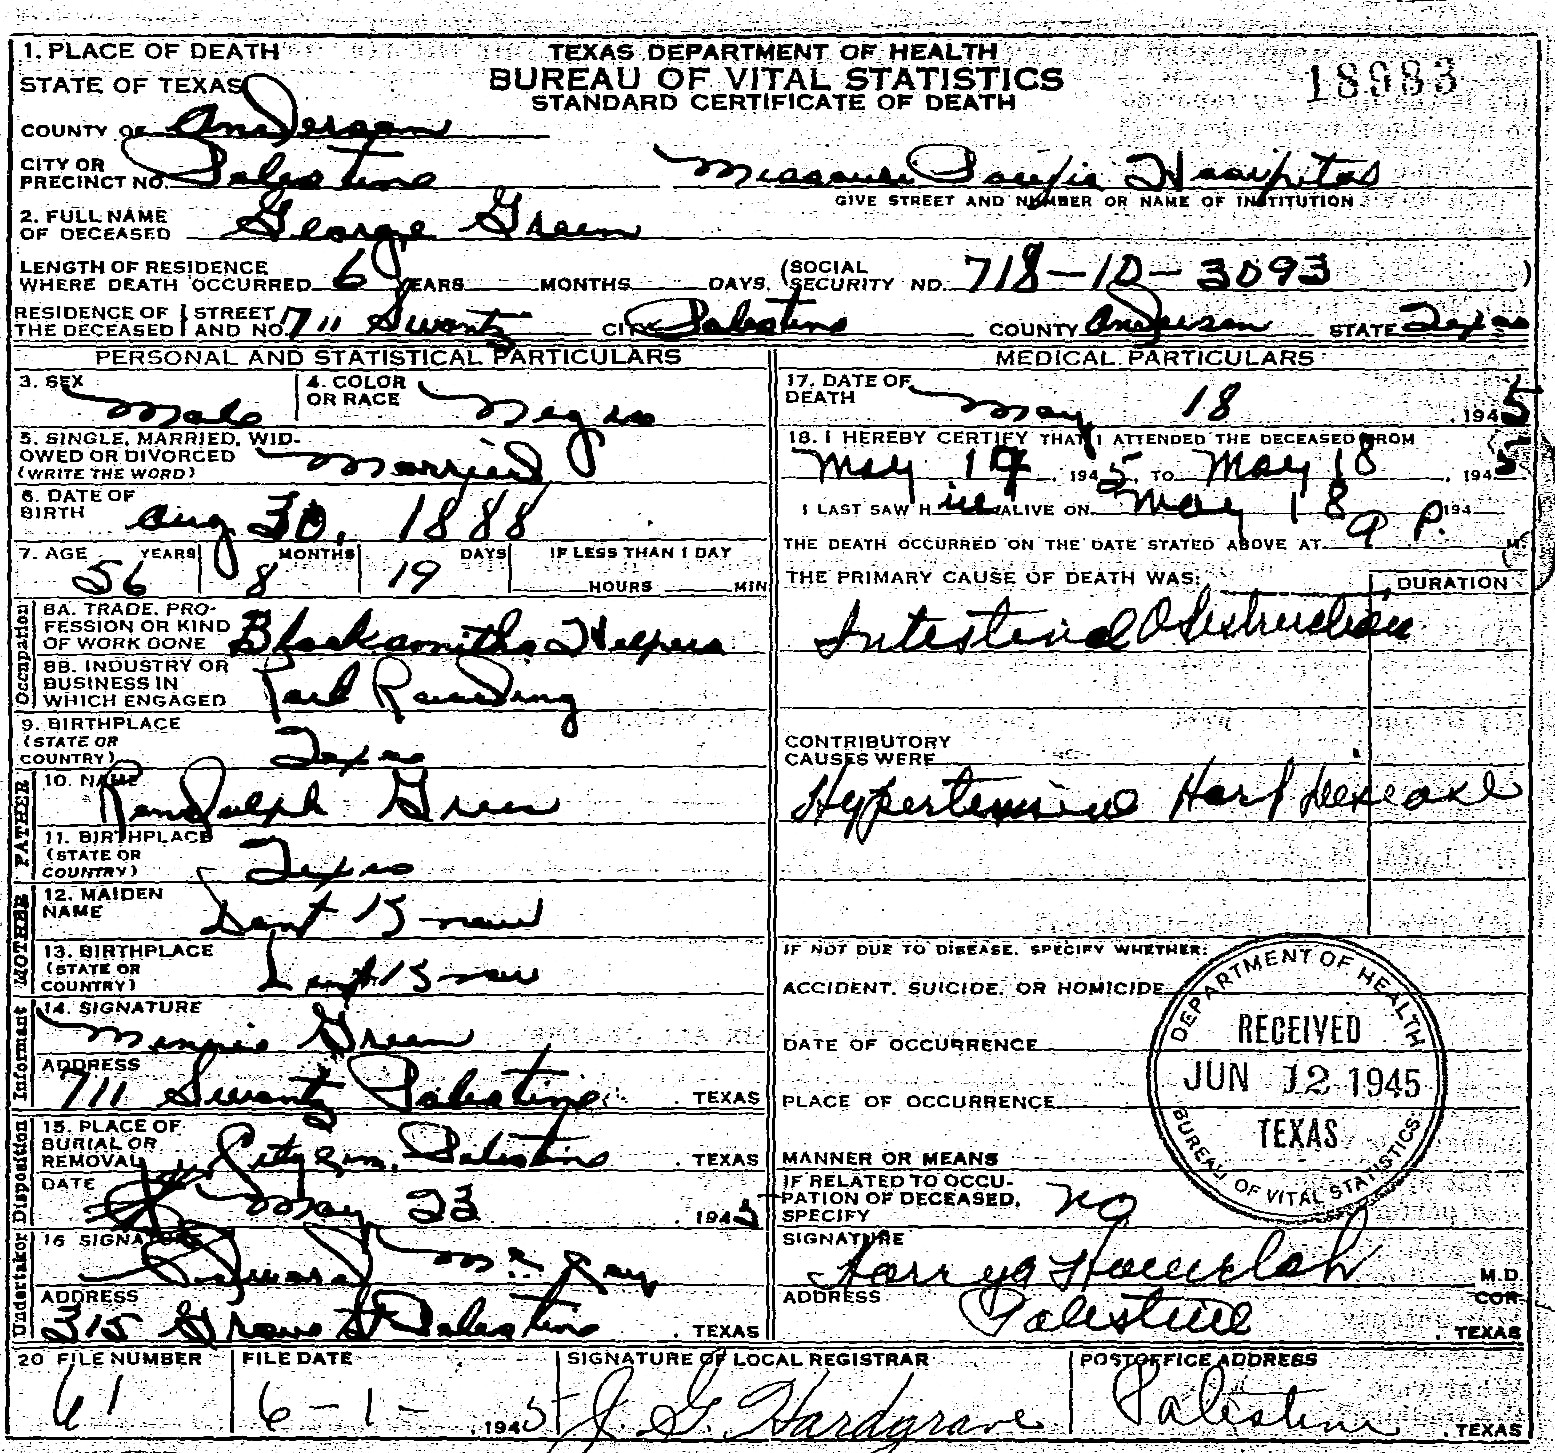 1. PLACE OF DEATH
TEXAS DEPARTMENT OF HEALTH
BUREAU OF VITAL STATISTICS
STANDARD CERTIFICATE OF DEATH
18983
STATE OF TEXAS
COUNTY OF Anderson
CITY OR PRECINCT NO. Palestine Missouri Pacific Hospital
GIVE STREET AND NUMBER OR NAME OF INSTITUTION
2. FULL NAME OF DECEASED George Green
LENGTH OF RESIDENCE WHERE DEATH OCCURRED 6 YEARS MONTHS DAYS. (SOCIAL SECURITY NO. 718-10-3093)
RESIDENCE OF THE DECEASED STREET AND NO. 711 Swantz CITY Palestine COUNTY Anderson STATE Texas
PERSONAL AND STATISTICAL PARTICULARS
3. SEX Male
4. COLOR OR RACE Negro
5. SINGLE, MARRIED, WIDOWED OR DIVORCED (WRITE THE WORD) Married
6. DATE OF BIRTH Aug 30, 1888
7. AGE YEARS MONTHS DAYS IF LESS THAN 1 DAY
56 8 19 HOURS MIN
Occupation
8A. TRADE, PROFESSION OR KIND OF WORK DONE Blacksmiths Helper
8B. INDUSTRY OR BUSINESS IN WHICH ENGAGED Rail Roading
9. BIRTHPLACE (STATE OR COUNTRY) Texas
FATHER
10. NAME Randolph Green
11. BIRTHPLACE (STATE OR COUNTRY) Texas
MOTHER
12. MAIDEN NAME Dont Know
13. BIRTHPLACE (STATE OR COUNTRY) Dont Know
Informant
14. SIGNATURE Minnie Green
ADDRESS 711 Swantz Palestine. TEXAS
Disposition
15. PLACE OF BURIAL OR REMOVAL City Cem. Palestine. TEXAS
DATE May 23 1945
Undertaker
16 SIGNATURE Edward McCoy
ADDRESS 315 Grove St Palestine. TEXAS
MEDICAL PARTICULARS
17. DATE OF DEATH May 18 1945
18. I HEREBY CERTIFY THAT I ATTENDED THE DECEASED FROM
May 14, 1945, TO May 18 1945
I LAST SAW H im ALIVE ON May 18 194
THE DEATH OCCURRED ON THE DATE STATED ABOVE AT 9 P. M
THE PRIMARY CAUSE OF DEATH WAS: DURATION
Intestinal Obstruction
CONTRIBUTORY CAUSES WERE
Hypertensive Hart Disease
IF NOT DUE TO DISEASE, SPECIFY WHETHER:
ACCIDENT, SUICIDE, OR HOMICIDE
DATE OF OCCURRENCE
PLACE OF OCCURRENCE
MANNER OR MEANS
IF RELATED TO OCCUPATION OF DECEASED, SPECIFY no
SIGNATURE M.D.
COR
ADDRESS Palestine. TEXAS
DEPARTMENT OF HEALTH
RECEIVED
JUN 12 1945
TEXAS
BUREAU OF VITAL STATISTICS
20 FILE NUMBER FILE DATE SIGNATURE OF LOCAL REGISTRAR POSTOFFICE ADDRESS
61 6-1- 1945 J. G. Hardgrave Palestine. TEXAS